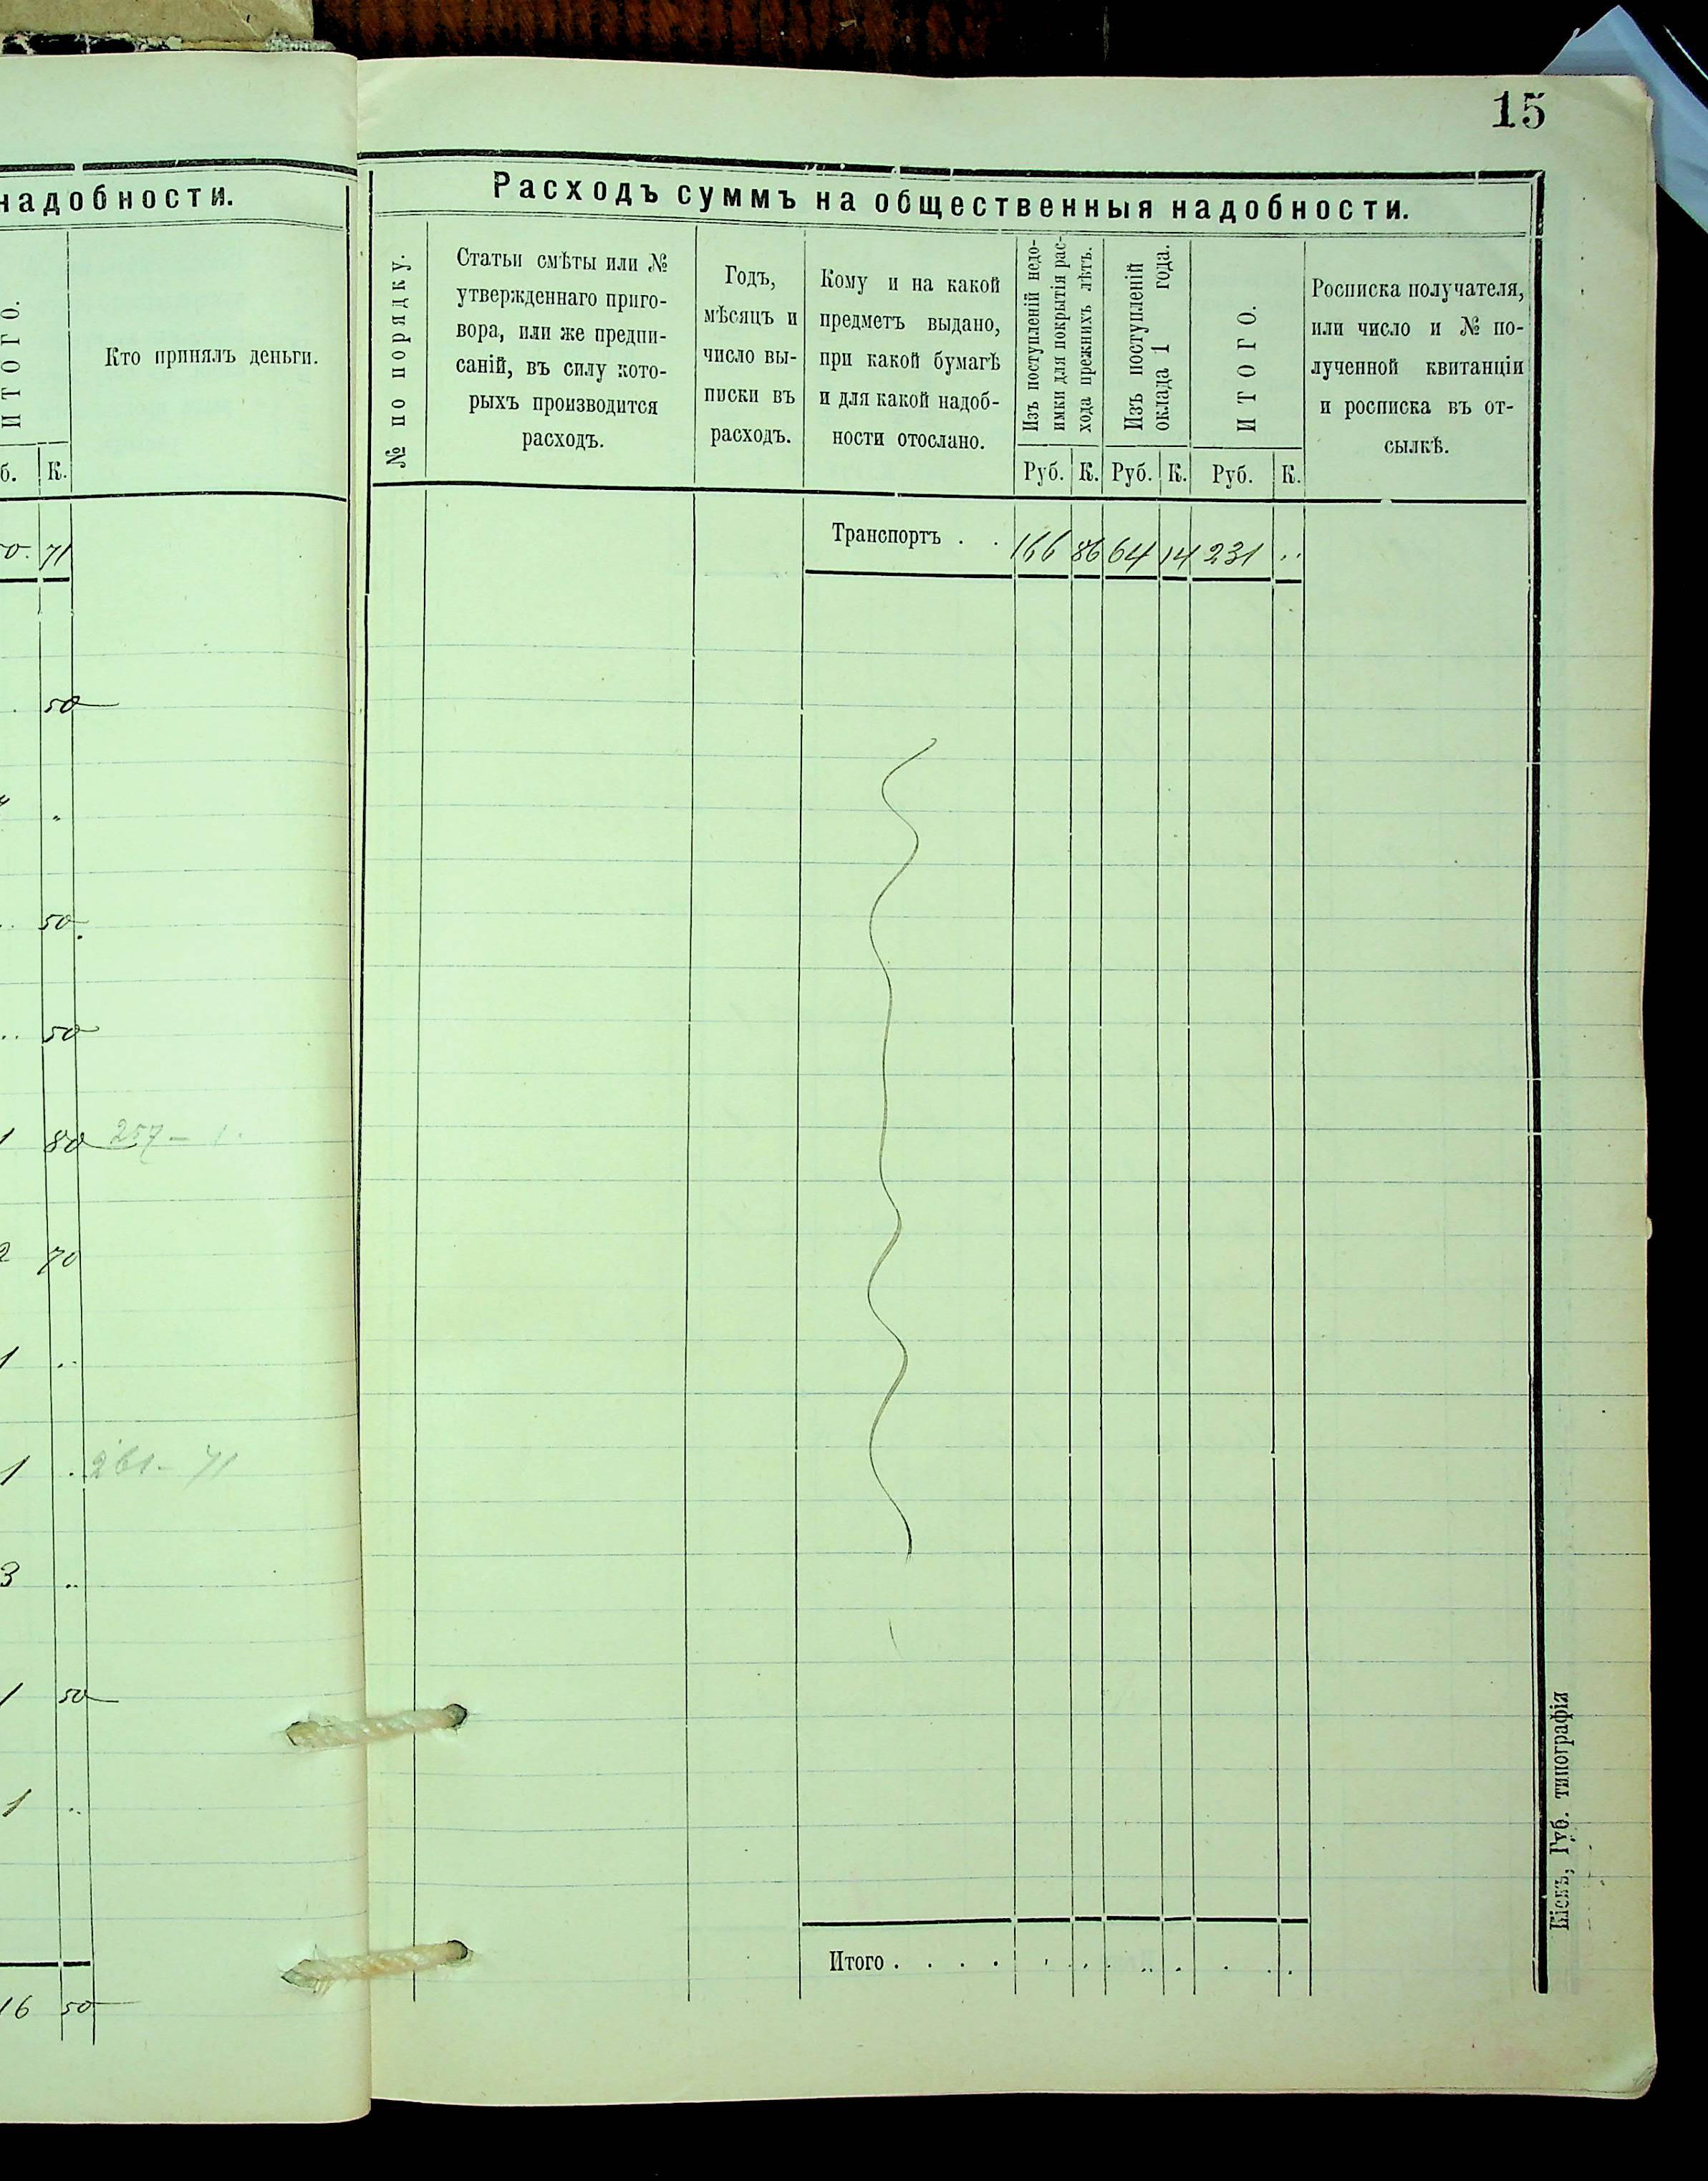 15
надобности.
ИТОГО.
Кто принялъ деньги.
б. К.
0. 71
50
"
50
50
1 80 257 - 1
2 70
1 ..
1 . 261 - 71
3 ..
1 50
1 ..
16 50
Расходъ суммъ на общественныя надобности.
№ по порядку.
Статьи смѣты или №
утвержденнаго приго-
вора, или же предпи-
саній, въ силу кото-
рыхъ производится
расходъ.
Годъ,
мѣсяцъ и
число вы-
писки въ
расходъ.
Кому и на какой
предметъ выдано,
при какой бумагѣ
и для какой надоб-
ности отослано.
Изъ поступленій недо-
имки для покрытія рас-
хода прежнихъ лѣтъ.
Изъ поступленій
оклада 1 года.
ИТОГО.
Росписка получателя,
или число и № по-
лученной квитанціи
и росписка въ от-
сылкѣ.
Руб. К. Руб. К. Руб. К.
Транспортъ . . 166 86 64 14 231 ..
Итого . . . .
Кіевъ, Губ. типографія